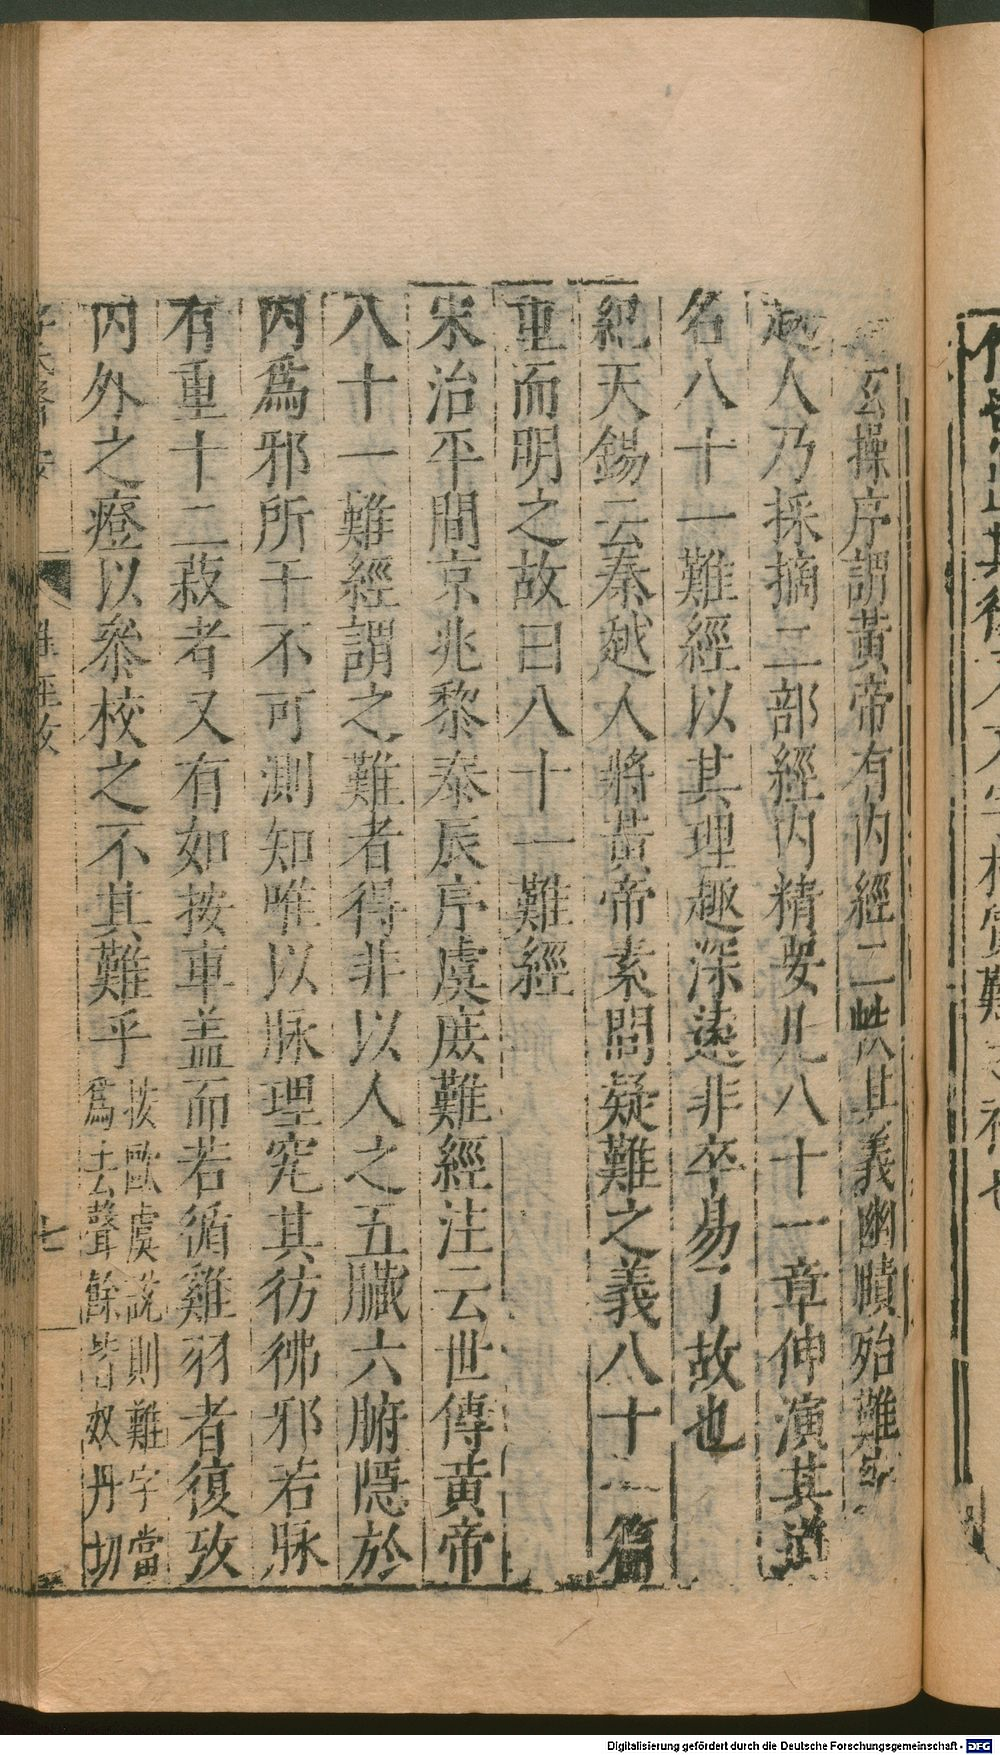 玄操序謂黃帝有內經二帙其義幽賾殆難
越人乃採摘二部經內精要凡八十一章伸演其道
名八十一難經以其理趣深遠非卒易了故也
紀天錫云秦越人將黃帝素問疑難之義八十一篇
重而明之故曰八十一難經
宋治平間京兆黎泰辰序虞庶難經注云世傳黃帝
八十一難經謂之難者得非以人之五臟六腑隱於
內爲邪所干不可測知唯以脉理究其彷彿邪若脉
有重十二菽者又有如按車盖而若循雞羽者復攷
內外之證以參校之不其難乎
按歐虞說則難字當
爲去聲餘皆奴丹切
難經攷
七
Digitalisierung gefördert durch die Deutsche Forschungsgemeinschaft - DFG